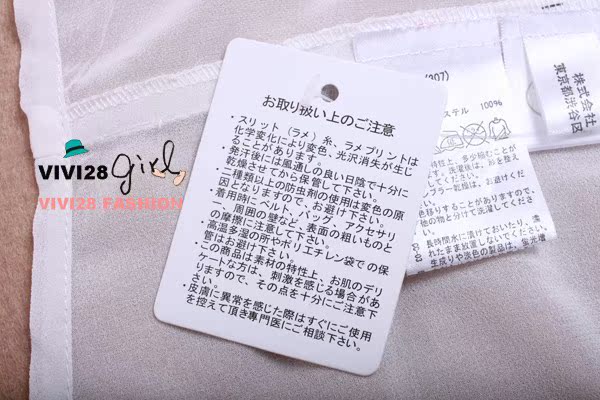 お取り扱い上のご注意
・スリット（ラメ）糸、ラメプリントは
化学変化により変色、光沢消失が生じ
ることがあります。
・発汗後には風通しの良い日陰で十分に
乾燥させてから保管して下さい。
・二種類以上の防虫剤の使用は変色の原
因となりますので、お避け下さい。
・着用時にベルト、バック、アクセサリ
ー、周囲の壁など、表面の粗いものと
の摩擦に注意して下さい。
・高温多湿の所やポリエチレン袋での保
管はお避け下さい。
・この商品は素材の特性上、お肌のデリ
ケートな方は、刺激を感じる場合があ
りますので、その点を十分にご注意下
さい。
・皮膚に異常を感じた際はすぐにご使用
を控えて頂き専門医にご相談下さい。
VIVI28 girl
VIVI28 FASHION
(307)
ステル 100%
株式会社
東京都渋谷区